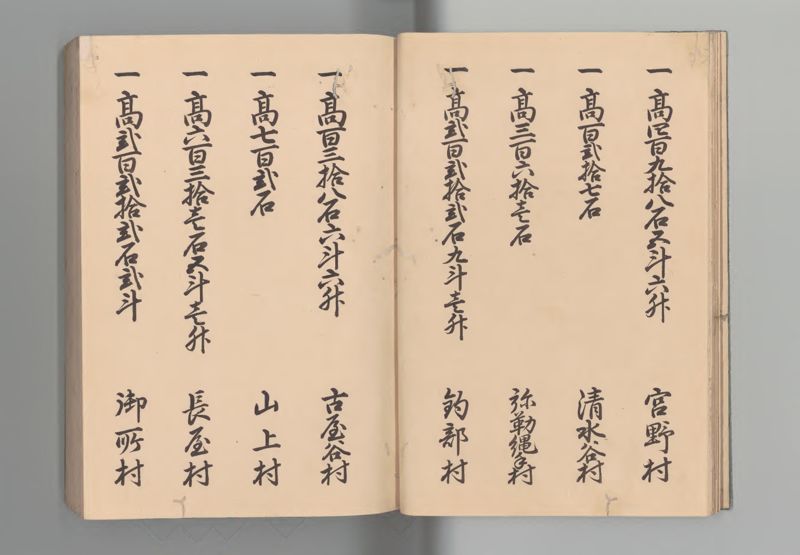 一高四百九拾八石五斗六升 宮野村
一高百弐拾七石 清水谷村
一高三百六拾壱石 弥勒縄手村
一高弐百弐拾弐石九斗壱升 釣部村
一高百三拾八石六斗六升 古屋谷村
一高七百弐石 山上村
一高六百三拾壱石五斗壱升 長屋村
一高弐百弐拾弐石弐斗 御所村